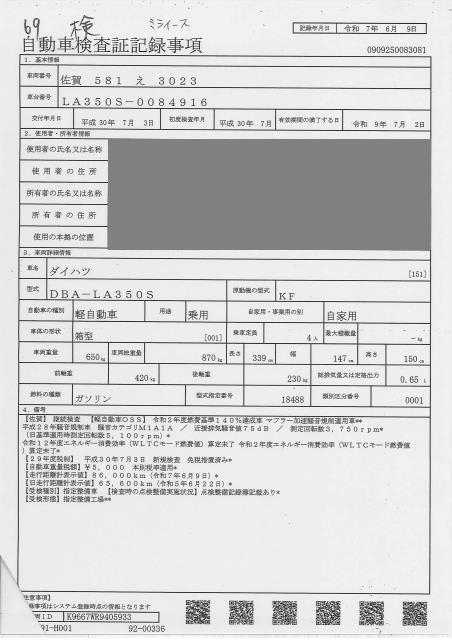 69 検 ミライース
記録年月日 令和 7年 6月 9日
自動車検査証記録事項
0909250083081
1. 基本情報
車両番号 佐賀 581 え 3023
車台番号 LA350S-0084916
交付年月日 平成 30年 7月 3日 初度検査年月 平成 30年 7月 有効期間の満了する日 令和 9年 7月 2日
2. 使用者・所有者情報
使用者の氏名又は名称
使用者の住所
所有者の氏名又は名称
所有者の住所
使用の本拠の位置
3. 車両詳細情報
車名 ダイハツ [151]
型式 DBA-LA350S 原動機の型式 KF
自動車の種別 軽自動車 用途 乗用 自家用・事業用の別 自家用
車体の形状 箱型 [001] 乗車定員 4人 最大積載量 -kg
車両重量 650kg 車両総重量 870kg 長さ 339cm 幅 147cm 高さ 150cm
前軸重 420kg 後軸重 230kg 総排気量又は定格出力 0.65 L
燃料の種類 ガソリン 型式指定番号 18488 類別区分番号 0001
4. 備考
【佐賀】 継続検査 【軽自動車OSS】 令和2年度燃費基準140%達成車 マフラー加速騒音規制適用車**
平成28年騒音規制車 騒音カテゴリM1A1A / 近接排気騒音値75dB / 測定回転数3,750rpm*
(旧基準適用時測定回転数5,100rpm)*
令和12年度エネルギー消費効率(WLTCモード燃費値)算定未了 令和2年度エネルギー消費効率(WLTCモード燃費値
)算定未了*
【29年度税制】 平成30年7月3日 新規検査 免税措置済み*
【自動車重量税額】¥5,000 本則税率適用*
【走行距離計表示値】86,000km(令和7年6月9日)*
【旧走行距離計表示値】65,600km(令和5年6月22日)*
【受検種別】指定整備車 【検査時の点検整備実施状況】点検整備記録簿記載あり*
【受検形態】指定整備工場**
注意事項】
事項はシステム登録時点の情報となります
ID K9667WR9405933
91-H001 92-00336